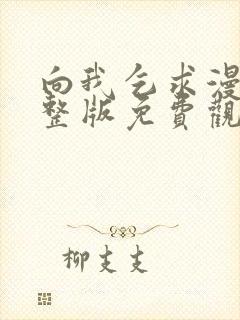 向我乞求漫
整版免費觀
柳支支